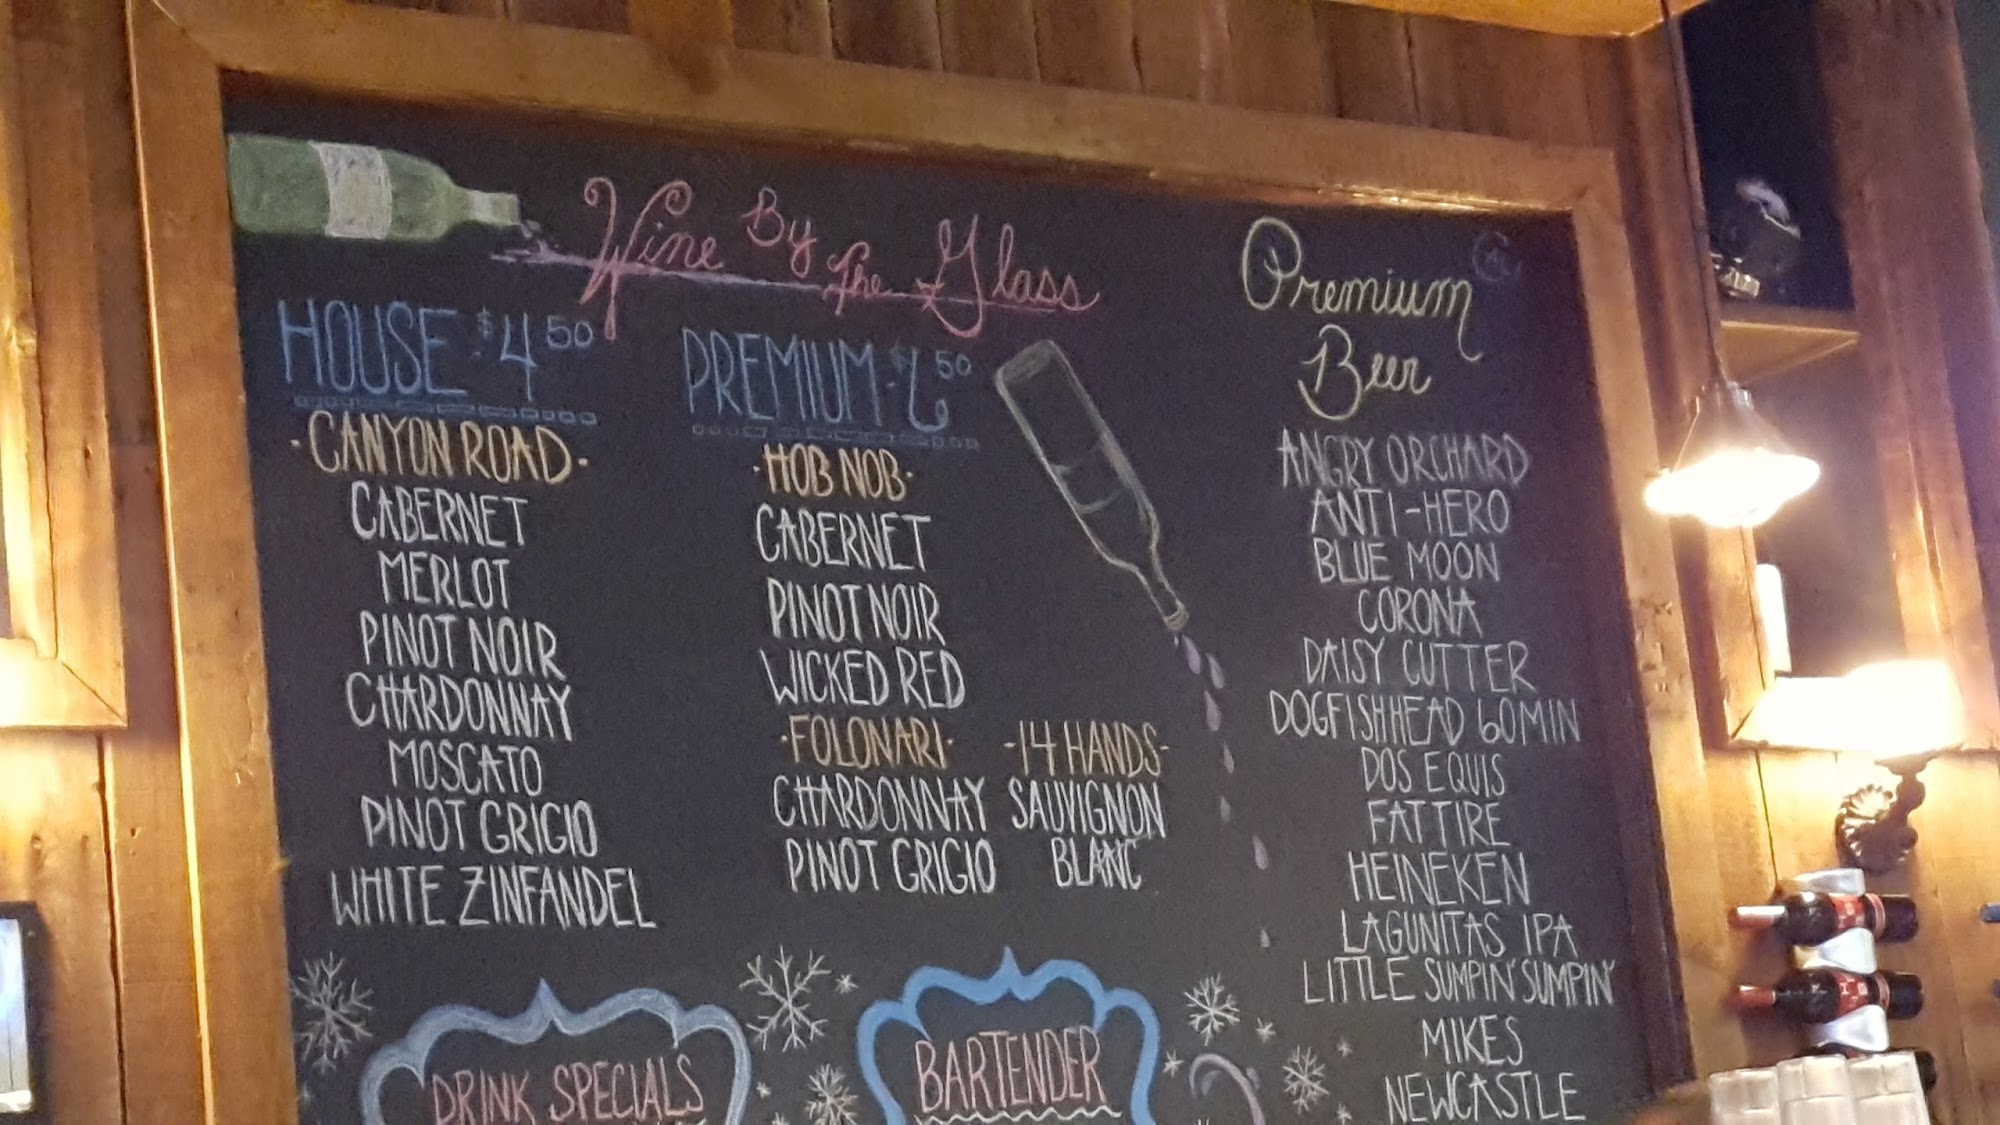 Wine By The Glass
HOUSE $4.50
·CANYON ROAD·
CABERNET
MERLOT
PINOT NOIR
CHARDONNAY
MOSCATO
PINOT GRIGIO
WHITE ZINFANDEL
PREMIUM - $6.50
·HOB NOB·
CABERNET
PINOT NOIR
WICKED RED
·FOLONARI·
CHARDONNAY
PINOT GRIGIO
-14 HANDS-
SAUVIGNON
BLANC
Premium
Beer
ANGRY ORCHARD
ANTI-HERO
BLUE MOON
CORONA
DAISY CUTTER
DOGFISHHEAD 60MIN
DOS EQUIS
FAT TIRE
HEINEKEN
LAGUNITAS IPA
LITTLE SUMPIN' SUMPIN'
MIKES
NEWCASTLE
DRINK SPECIALS
BARTENDER